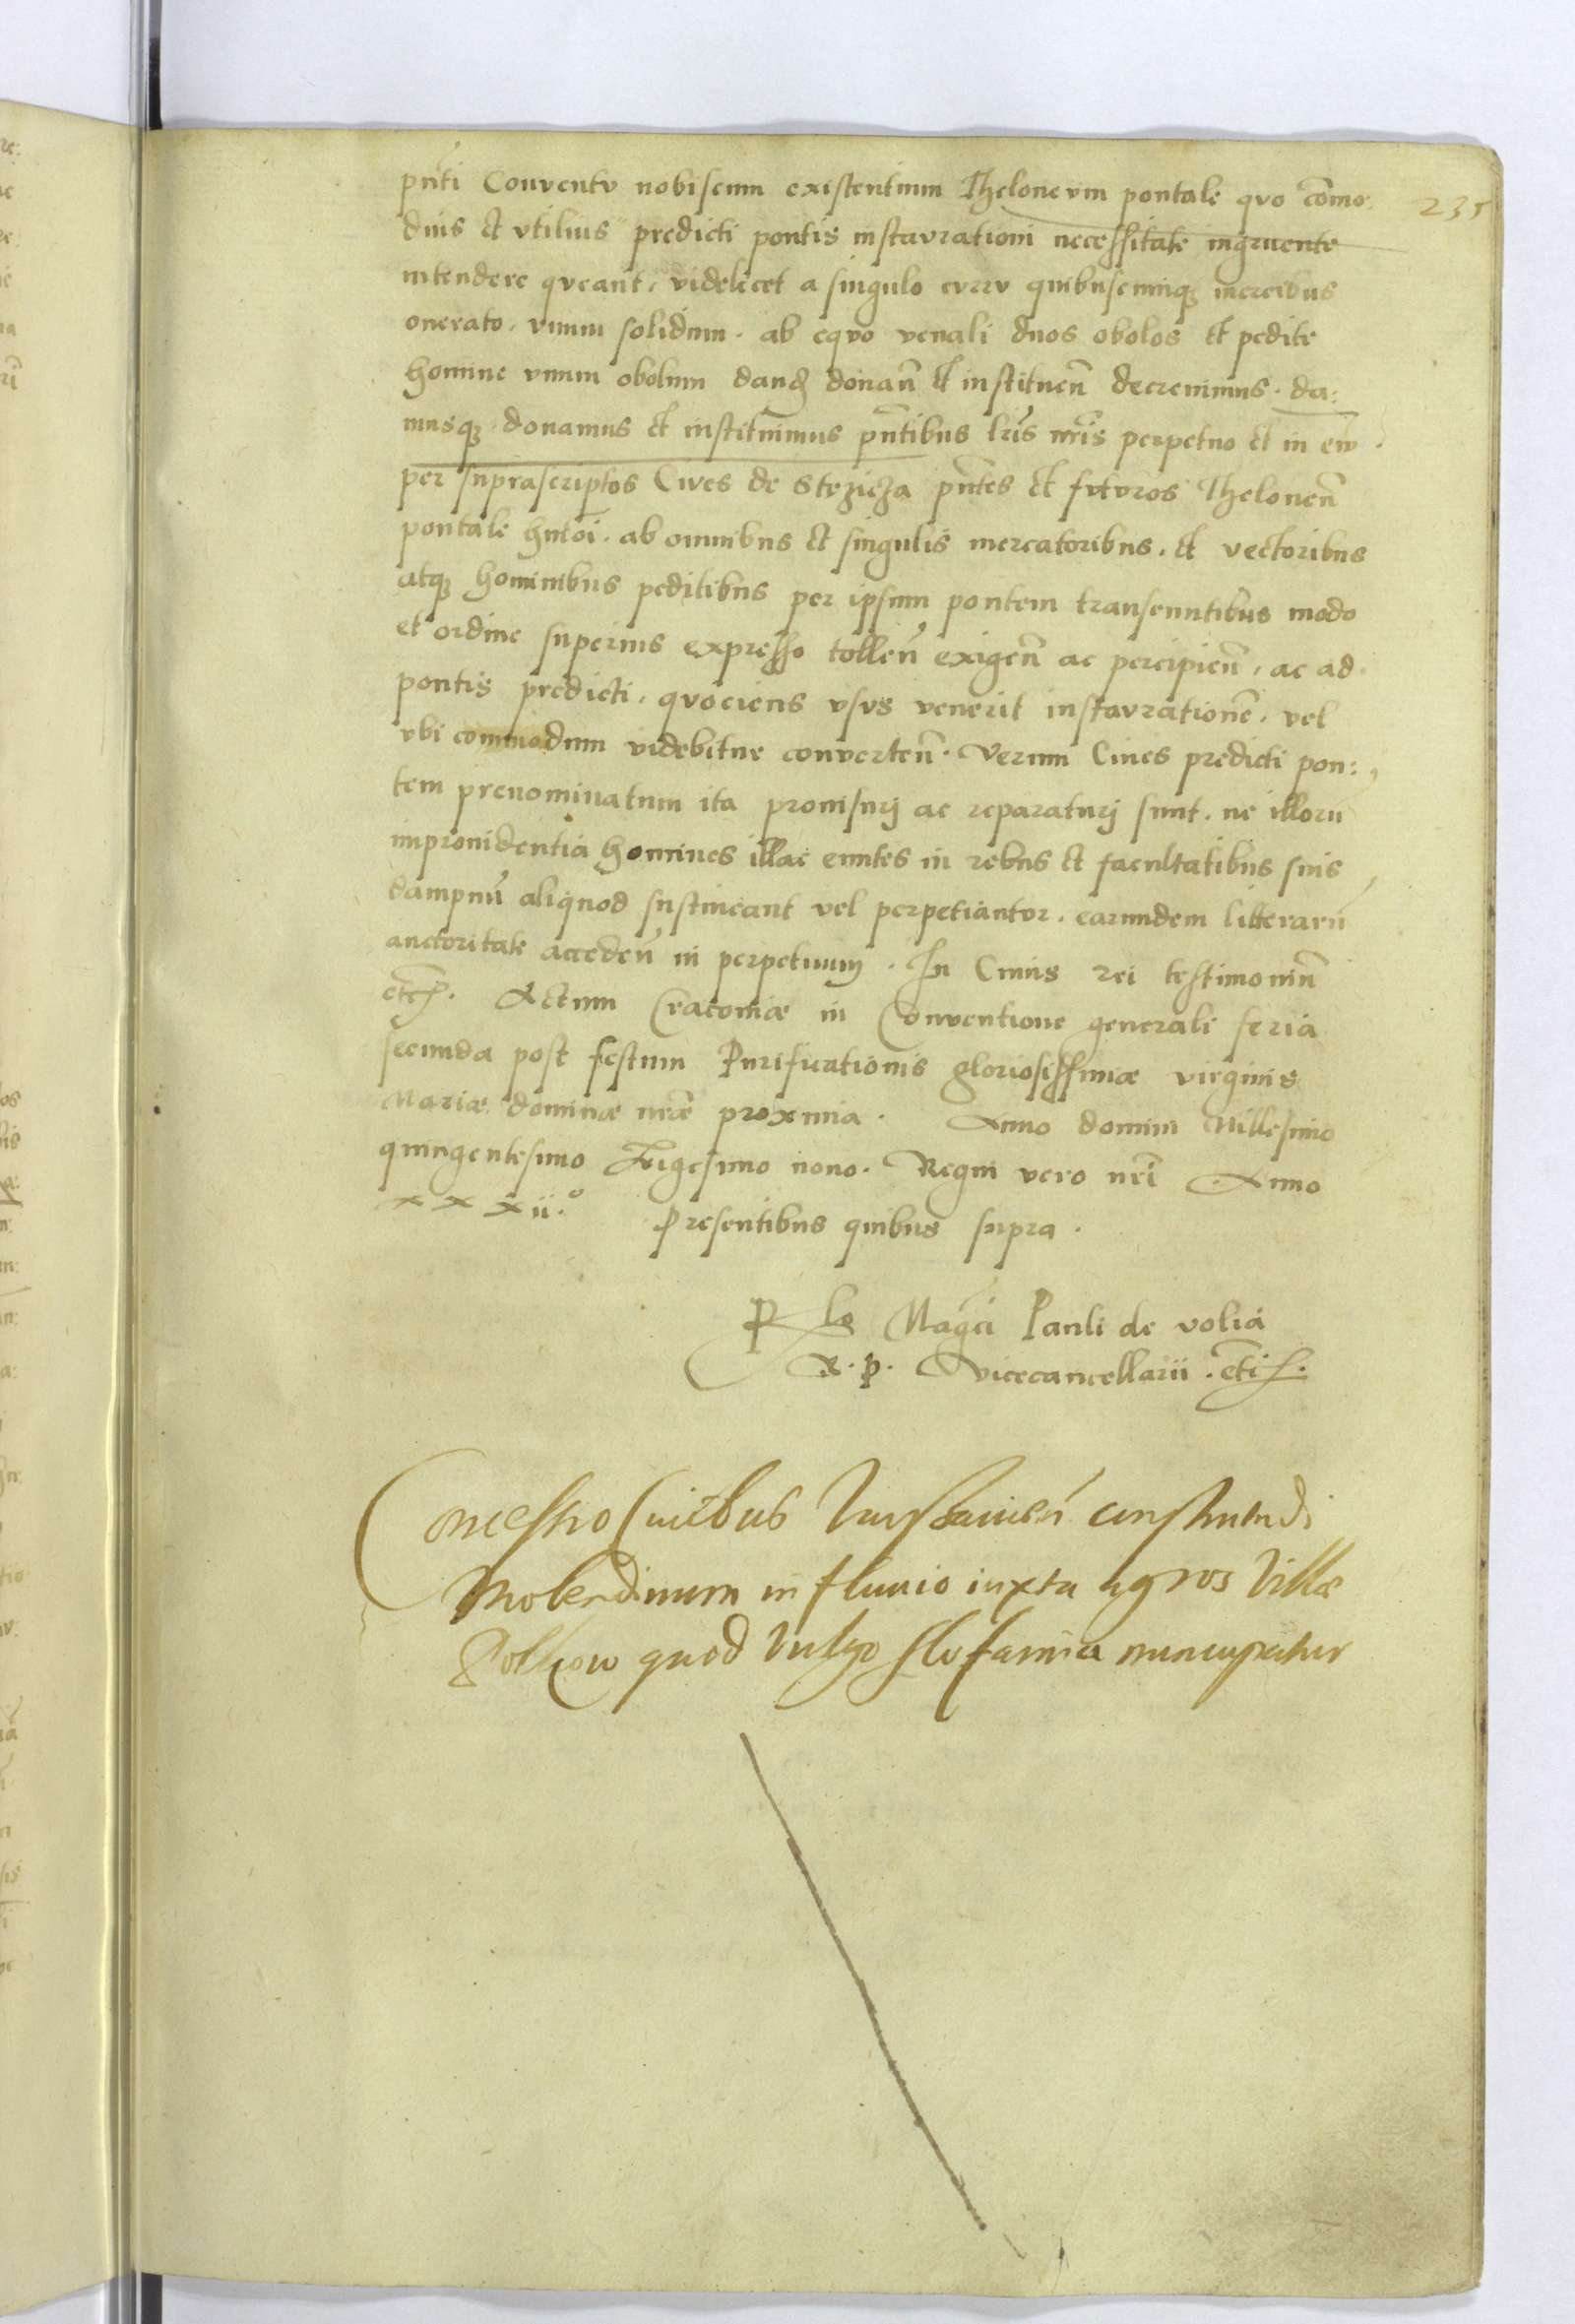 pnti Conventv nobiscum existentium Theloneum pontale qvo como:
235
dius et vtilius predicti pontis instavrationi necessitate ingruente
intendere qveant, videlicet a singulo cvrrv quibuscumq mercibus
onerato, vnum solidum, ab eqvo venali duos obolos et pedite
homine vnum obolum dand donan et instituen decrevimus, da:
musq, donamus et instituimus pntibus lris nris perpetuo et in ew
per suprascriptos Cives de Stezicza pntes et fvtvros Thelonen
pontale hmoi, ab omnibus et singulis mercatoribus, et vectoribus
atq hominibus peditibus per ipsum pontem transeuntibus modo
et ordine superius expresso tollen exigen ac percipien, ac ad
pontis predicti, qvociens vsvs venerit instavrationem, vel
vbi commodum videbitur converten. Verum Cives predicti pon:
tem prenominatum ita provisurj ac reparaturj sunt, ne illoru
improvidentia homines illac euntes in rebus et facultatibus suis
dampnu aliquod sustineant vel perpetiantvr, earundem litteraru
auctoritate acceden in perpetuum. In Cuius rei testimoniu
etc. Actum Cracoviæ in Conventione generali feria
secunda post festum Purificationis gloriosissimæ virginis
Mariæ dominæ nræ proxima. Anno domini Millesimo
quingentesimo Trigesimo nono. Regni vero nri Anno
xxxii.º Presentibus quibus supra.
Rlo Magci Pauli de volia
R. P. vicecancellarii. etc.
Concessio Civibus Varschavien construendi
Molendinum in fluvio iuxta agros Villæ
quod vulgo nuncupatur